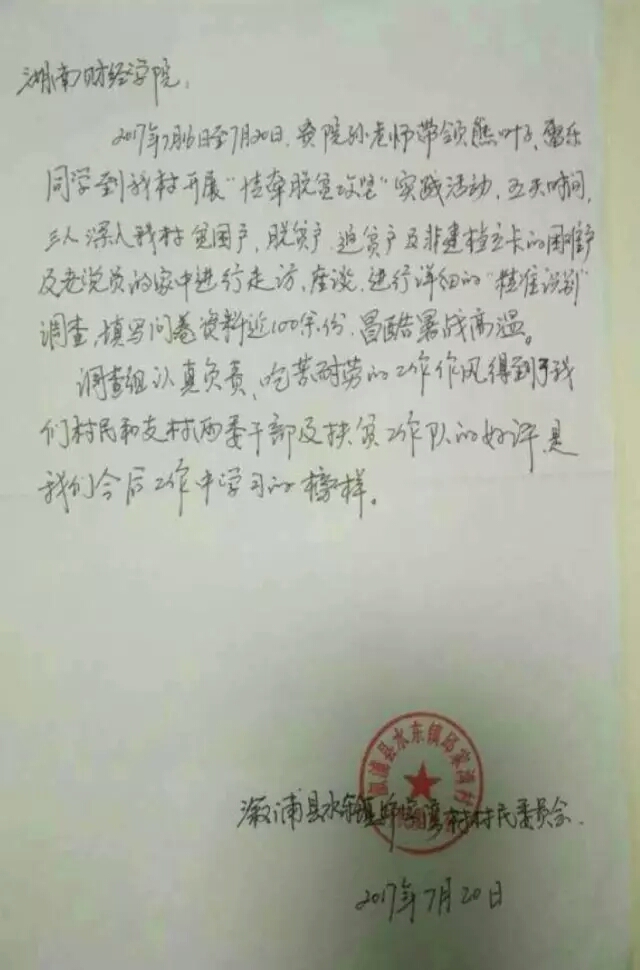 湖南财经学院：
2017年7月16日至7月20日，贵院孙老师带领熊叶子、 乐
同学到我村开展“情牵脱贫攻坚”实践活动，五天时间，
三人深入我村贫困户，脱贫户，返贫户及非建档立卡的困难户
及老党员的家中进行走访，座谈，进行详细的“精准识别”
调查，填写问卷资料近100余份，冒酷暑战高温。
调查组认真负责，吃苦耐劳的工作作风得到了我
们村民和支村两委干部及扶贫工作队的好评是
我们今后工作中学习的榜样。
溆浦县水东镇邱家湾村
溆浦县水东镇邱家湾村村民委员会.
2017年7月20日